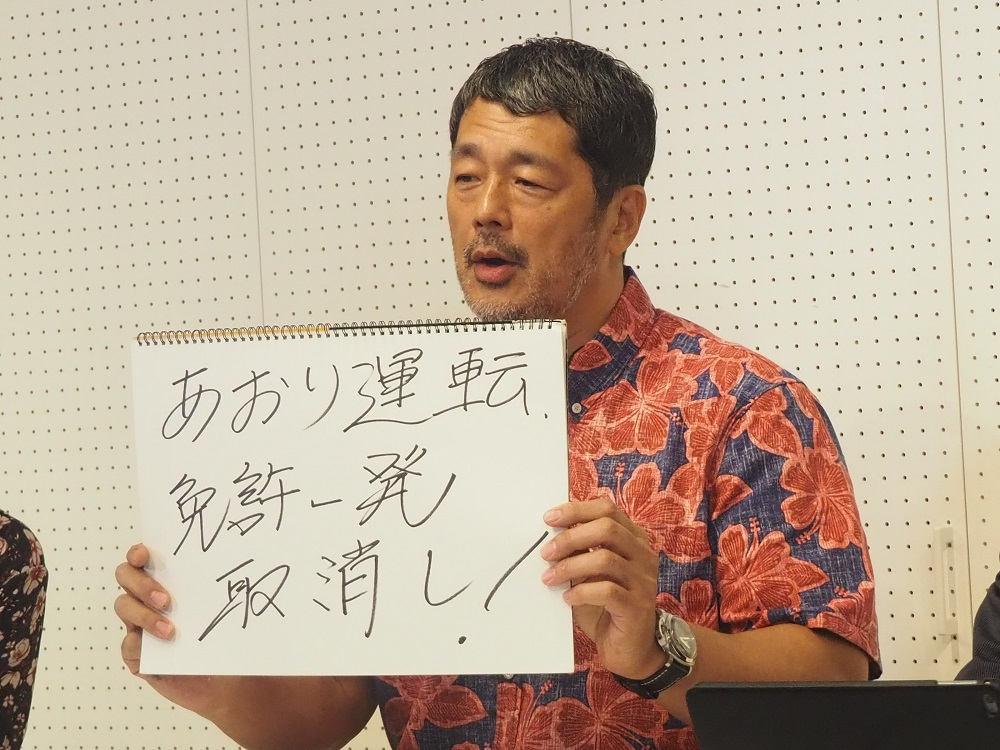 あおり運転
免許一発
取消し!